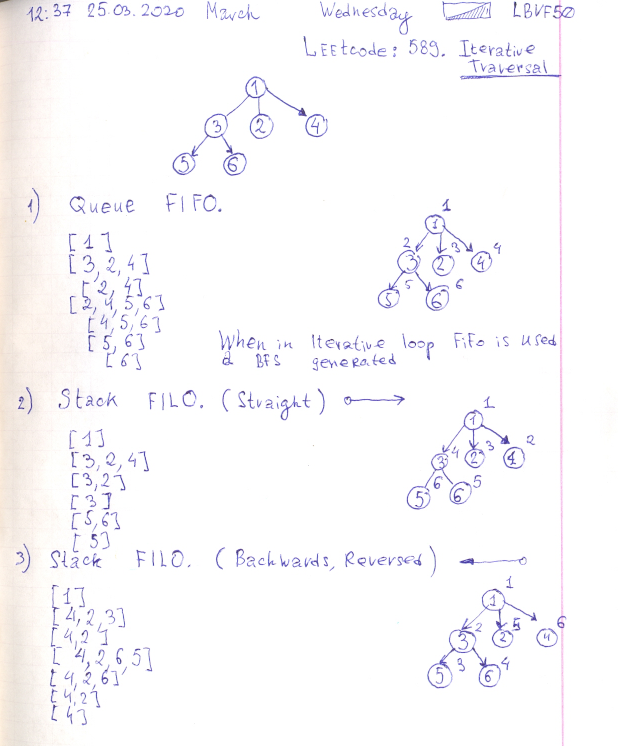 12:37 25.03.2020 March Wednesday LBVF50
LEEtcode: 589. Iterative
Traversal
1
3 2 4
5 6
1) Queue FIFO.
[1]
[3, 2, 4]
[2, 4]
[2, 4, 5, 6]
[4, 5, 6]
[5, 6]
[6]
1
1
2 3 4
3 2 4
5 6
5 6
When in Iterative loop FiFo is used
a BFS generated
2) Stack FILO. (Straight)
[1]
[3, 2, 4]
[3, 2]
[3]
[5, 6]
[5]
1
1
4 3 2
3 2 4
6 5
5 6
3) Stack FILO. (Backwards, Reversed)
[1]
[4, 2, 3]
[4, 2]
[4, 2, 6, 5]
[4, 2, 6]
[4, 2]
[4]
1
1
2 5 6
3 2 4
3 4
5 6